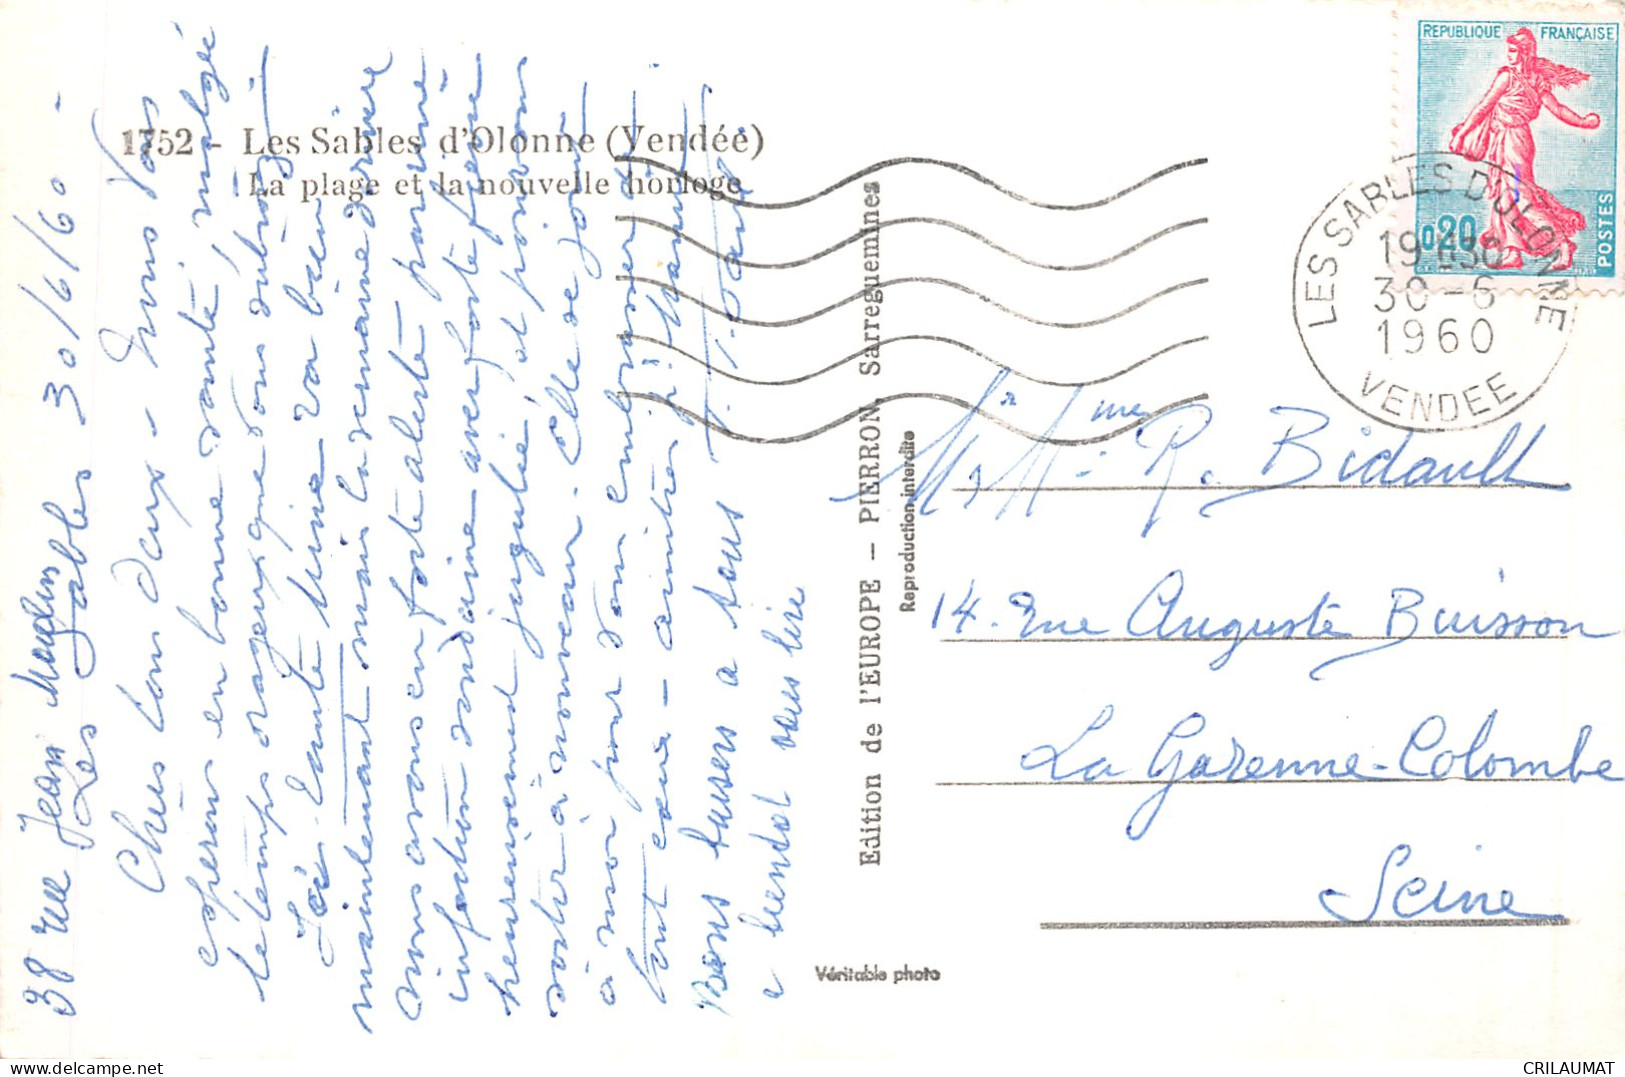 1752 - Les Sables d'Olonne (Vendée)
La plage et la nouvelle horloge
38 rue Jean Moulin
Les Sables 30/6/60 -
Chers tous deux - Nous vous
espérons en bonne santé, malgré
le temps orageux que vous subissez
Ici toute va bien
maintenant mais la semaine dernière
nous avons eu forte alerte
infection avec forte fièvre
heureusement jugulée, et pouvons
sortir à nouveau. Elle se joint
à moi pour vous embrasser
tout cœur - amitiés
Bons baisers à tous
à bientôt vous lire
Edition de l'EUROPE — PIERRON, Sarreguemines
Reproduction interdite
Véritable photo
REPUBLIQUE FRANÇAISE
0,20
POSTES
LES SABLES D'OLONNE
19 H30
30-6
1960
VENDEE
Mr Mme R. Bidault
14. Rue Auguste Buisson
La Garenne-Colombe
Seine
CRILAUMAT